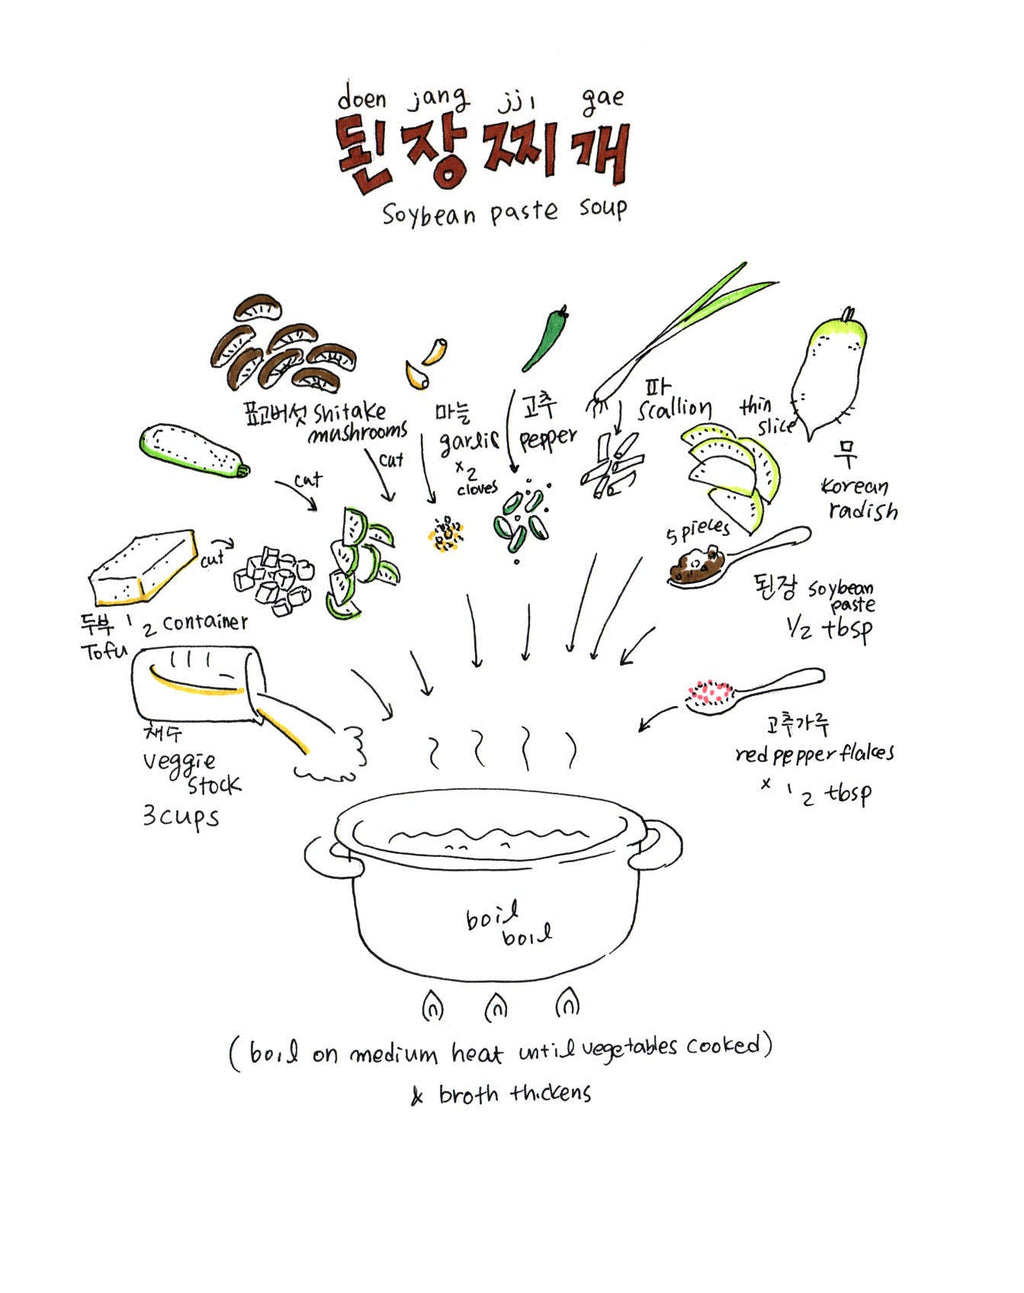 doen jang jji gae
된장찌개
Soybean paste soup
표고버섯 Shitake
mushrooms
cut
마늘
garlic
x 2
cloves
고추
pepper
파
Scallion
thin
slice
무
Korean
radish
5 pieces
cut
cut
두부 1 2 container
Tofu
된장 soybean
paste
1/2 tbsp
채수
veggie
stock
3 cups
고춧가루
red pepper flakes
x 1 2 tbsp
boil
boil
(boil on medium heat until vegetables cooked)
& broth thickens